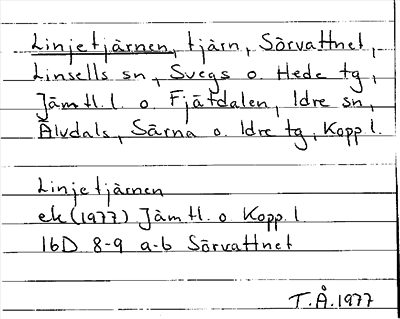 Linjetjärnen, tjärn, Sörvattnet,
Linsells sn, Svegs o. Hede tg,
Jämtl.l. o. Fjätdalen, Idre sn,
Älvdals, Särna o. Idre tg, Kopp.l.
Linjetjärnen
ek (1977) Jämtl. o Kopp.l
16D 8-9 a-b Sörvattnet
T.Å.1977